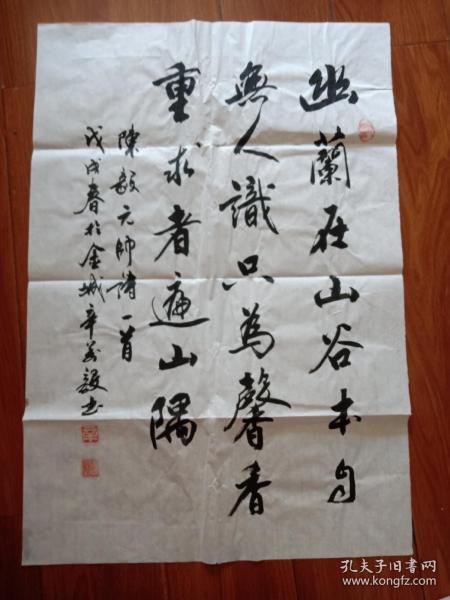 幽蘭在山谷本自
無人識只為馨香
重求者遍山隅
陳毅元帥詩一首
戊戌春於金城辛
孔夫子旧书网
www.kongfz.com